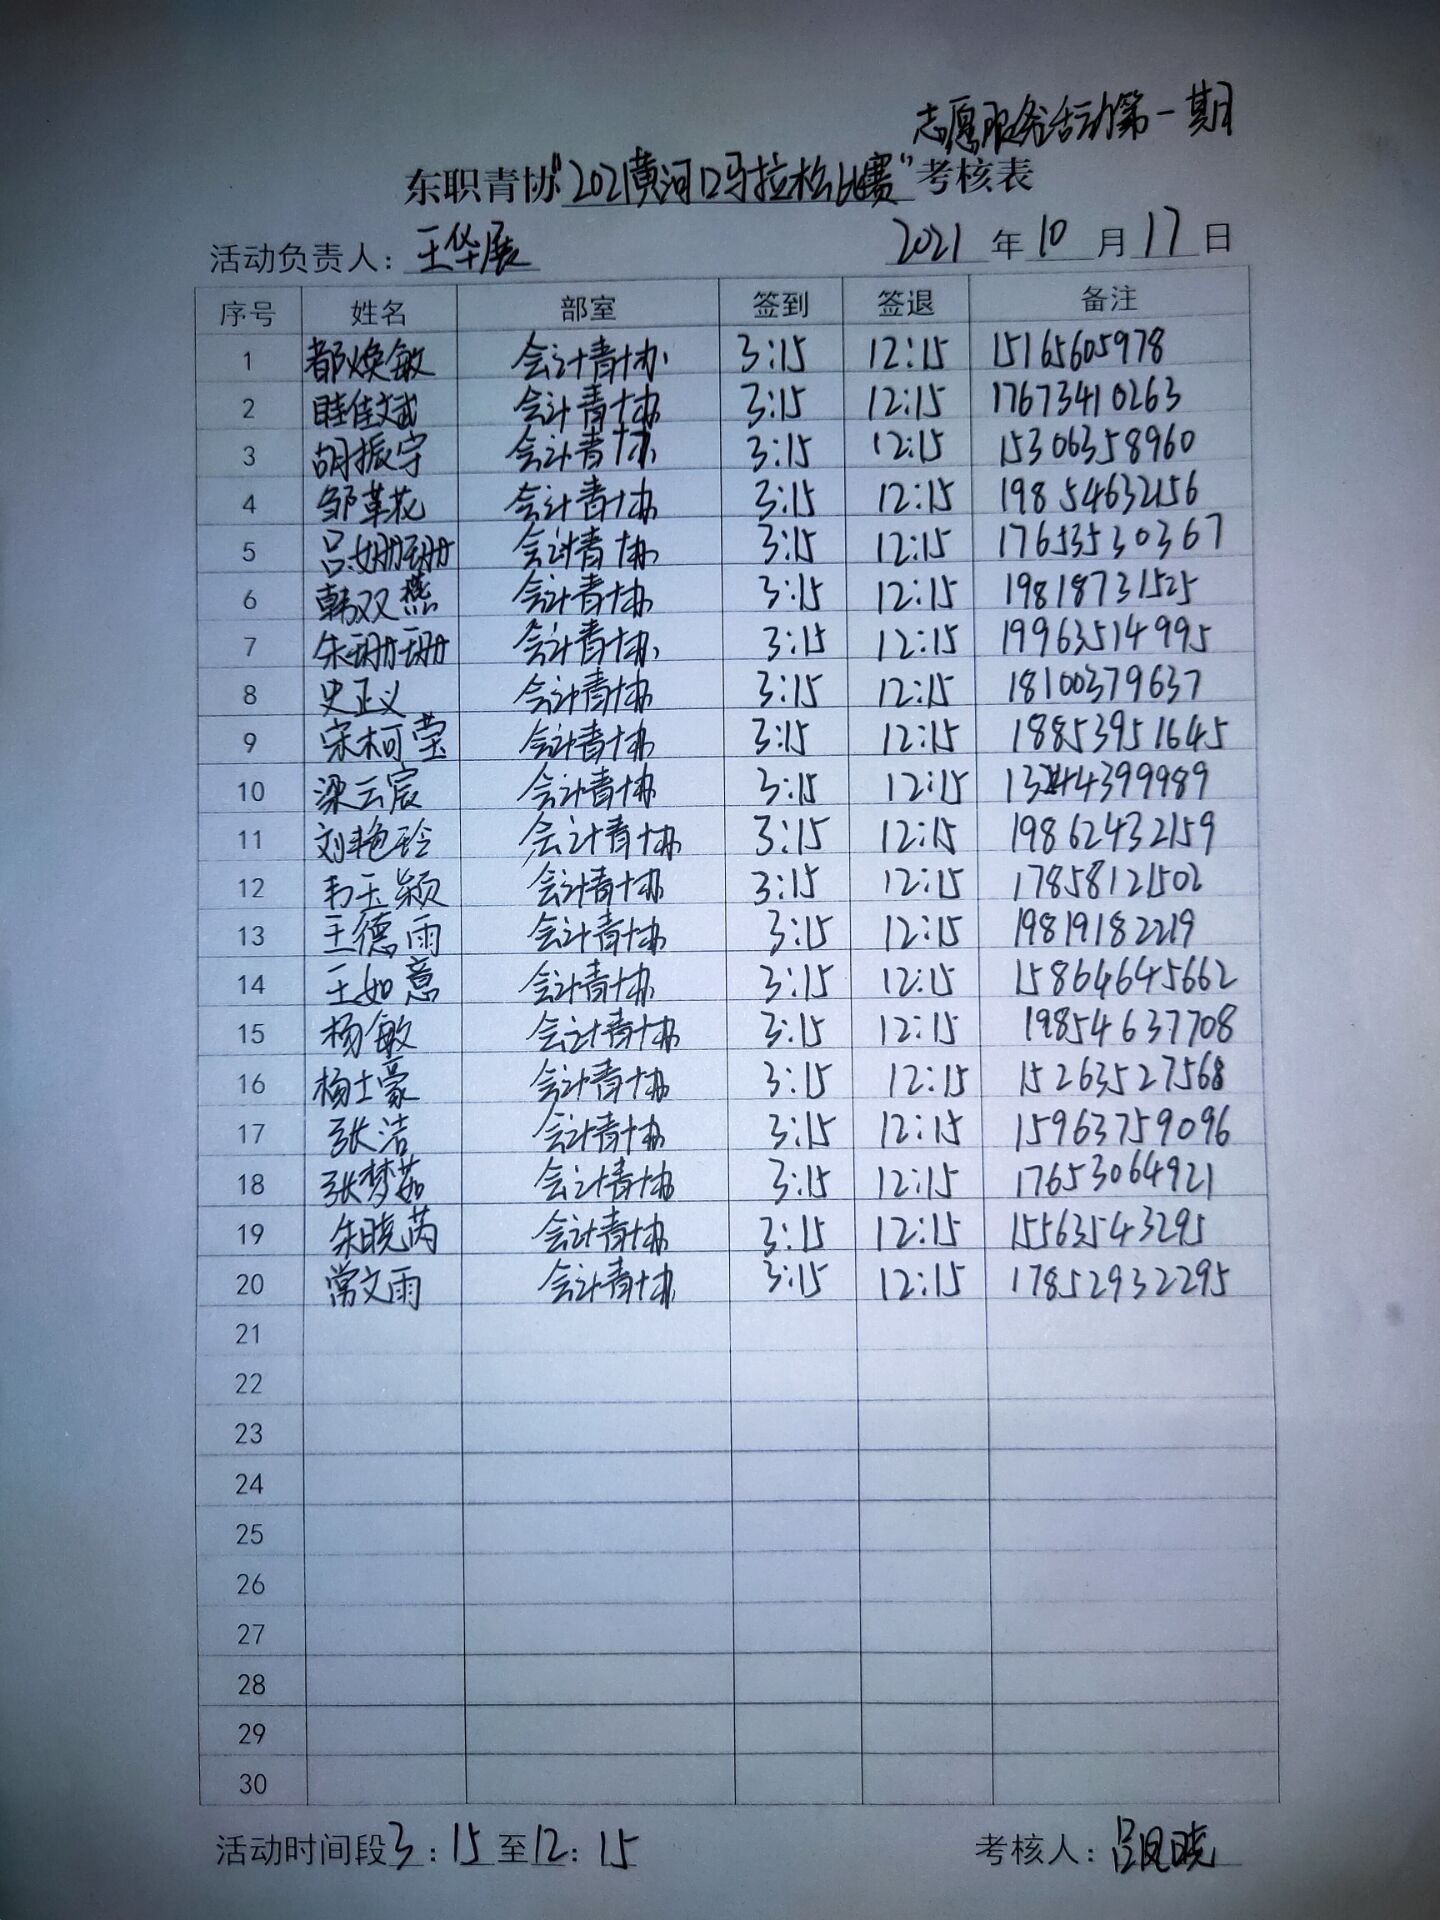 志愿服务活动第一期
东职青协“2021黄河口马拉松比赛”考核表
活动负责人：王华展 2021 年 10 月 17 日
序号 姓名 部室 签到 签退 备注
1 都焕敏 会计青协 3:15 12:15 15165605978
2 眭佳斌 会计青协 3:15 12:15 17673410263
3 胡振宇 会计青协 3:15 12:15 15306358960
4 邹革花 会计青协 3:15 12:15 19854632156
5 吕姗珊 会计青协 3:15 12:15 17653530367
6 韩双燕 会计青协 3:15 12:15 19818731525
7 朱珊珊 会计青协 3:15 12:15 19963514995
8 史正义 会计青协 3:15 12:15 18100379637
9 宋柯莹 会计青协 3:15 12:15 18853951645
10 梁云宸 会计青协 3:15 12:15
11 刘艳玲 会计青协 3:15 12:15 19862432159
12 韦玉颖 会计青协 3:15 12:15 17858121502
13 王德雨 会计青协 3:15 12:15 19819182219
14 王如意 会计青协 3:15 12:15 15864645662
15 杨敏 会计青协 3:15 12:15 19854637708
16 杨士豪 会计青协 3:15 12:15 15263527568
17 张洁 会计青协 3:15 12:15 15963759096
18 张梦茹 会计青协 3:15 12:15 17653064921
19 朱晓芮 会计青协 3:15 12:15 15563543295
20 常文雨 会计青协 3:15 12:15 17852932295
21
22
23
24
25
26
27
28
29
30
活动时间段3：15至12：15 考核人：吕凤晓